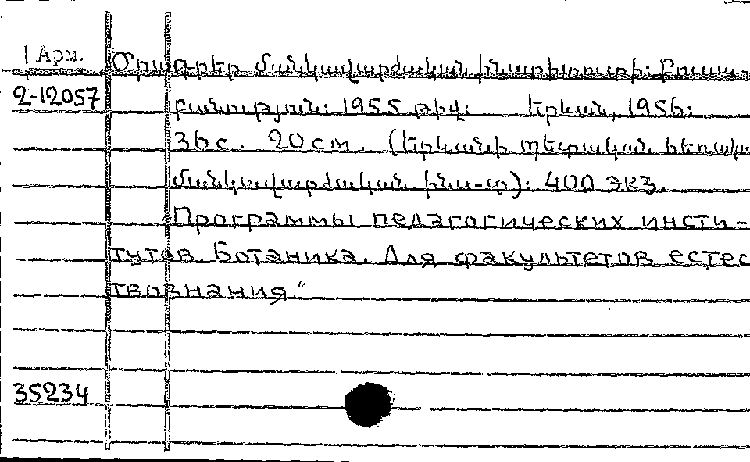 1 Арм.
Ծրագրեր մանկավարժական ինստիտուտի: Բուսա-
2-12057
բանություն: 1955 թիվ: Երևան, 1956:
36с. 20см. (Երևանի պետական հեռակ.
մանկավարժական ինս-տ): 400 экз.
Программы педагогических инсти-
тутов. Ботаника. Для факультетов естес
твознания"
35234